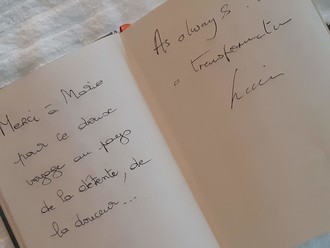 Merci à Marie
pour ce doux
voyage au pays
de la détente, de
la douceur...
As always
transformation